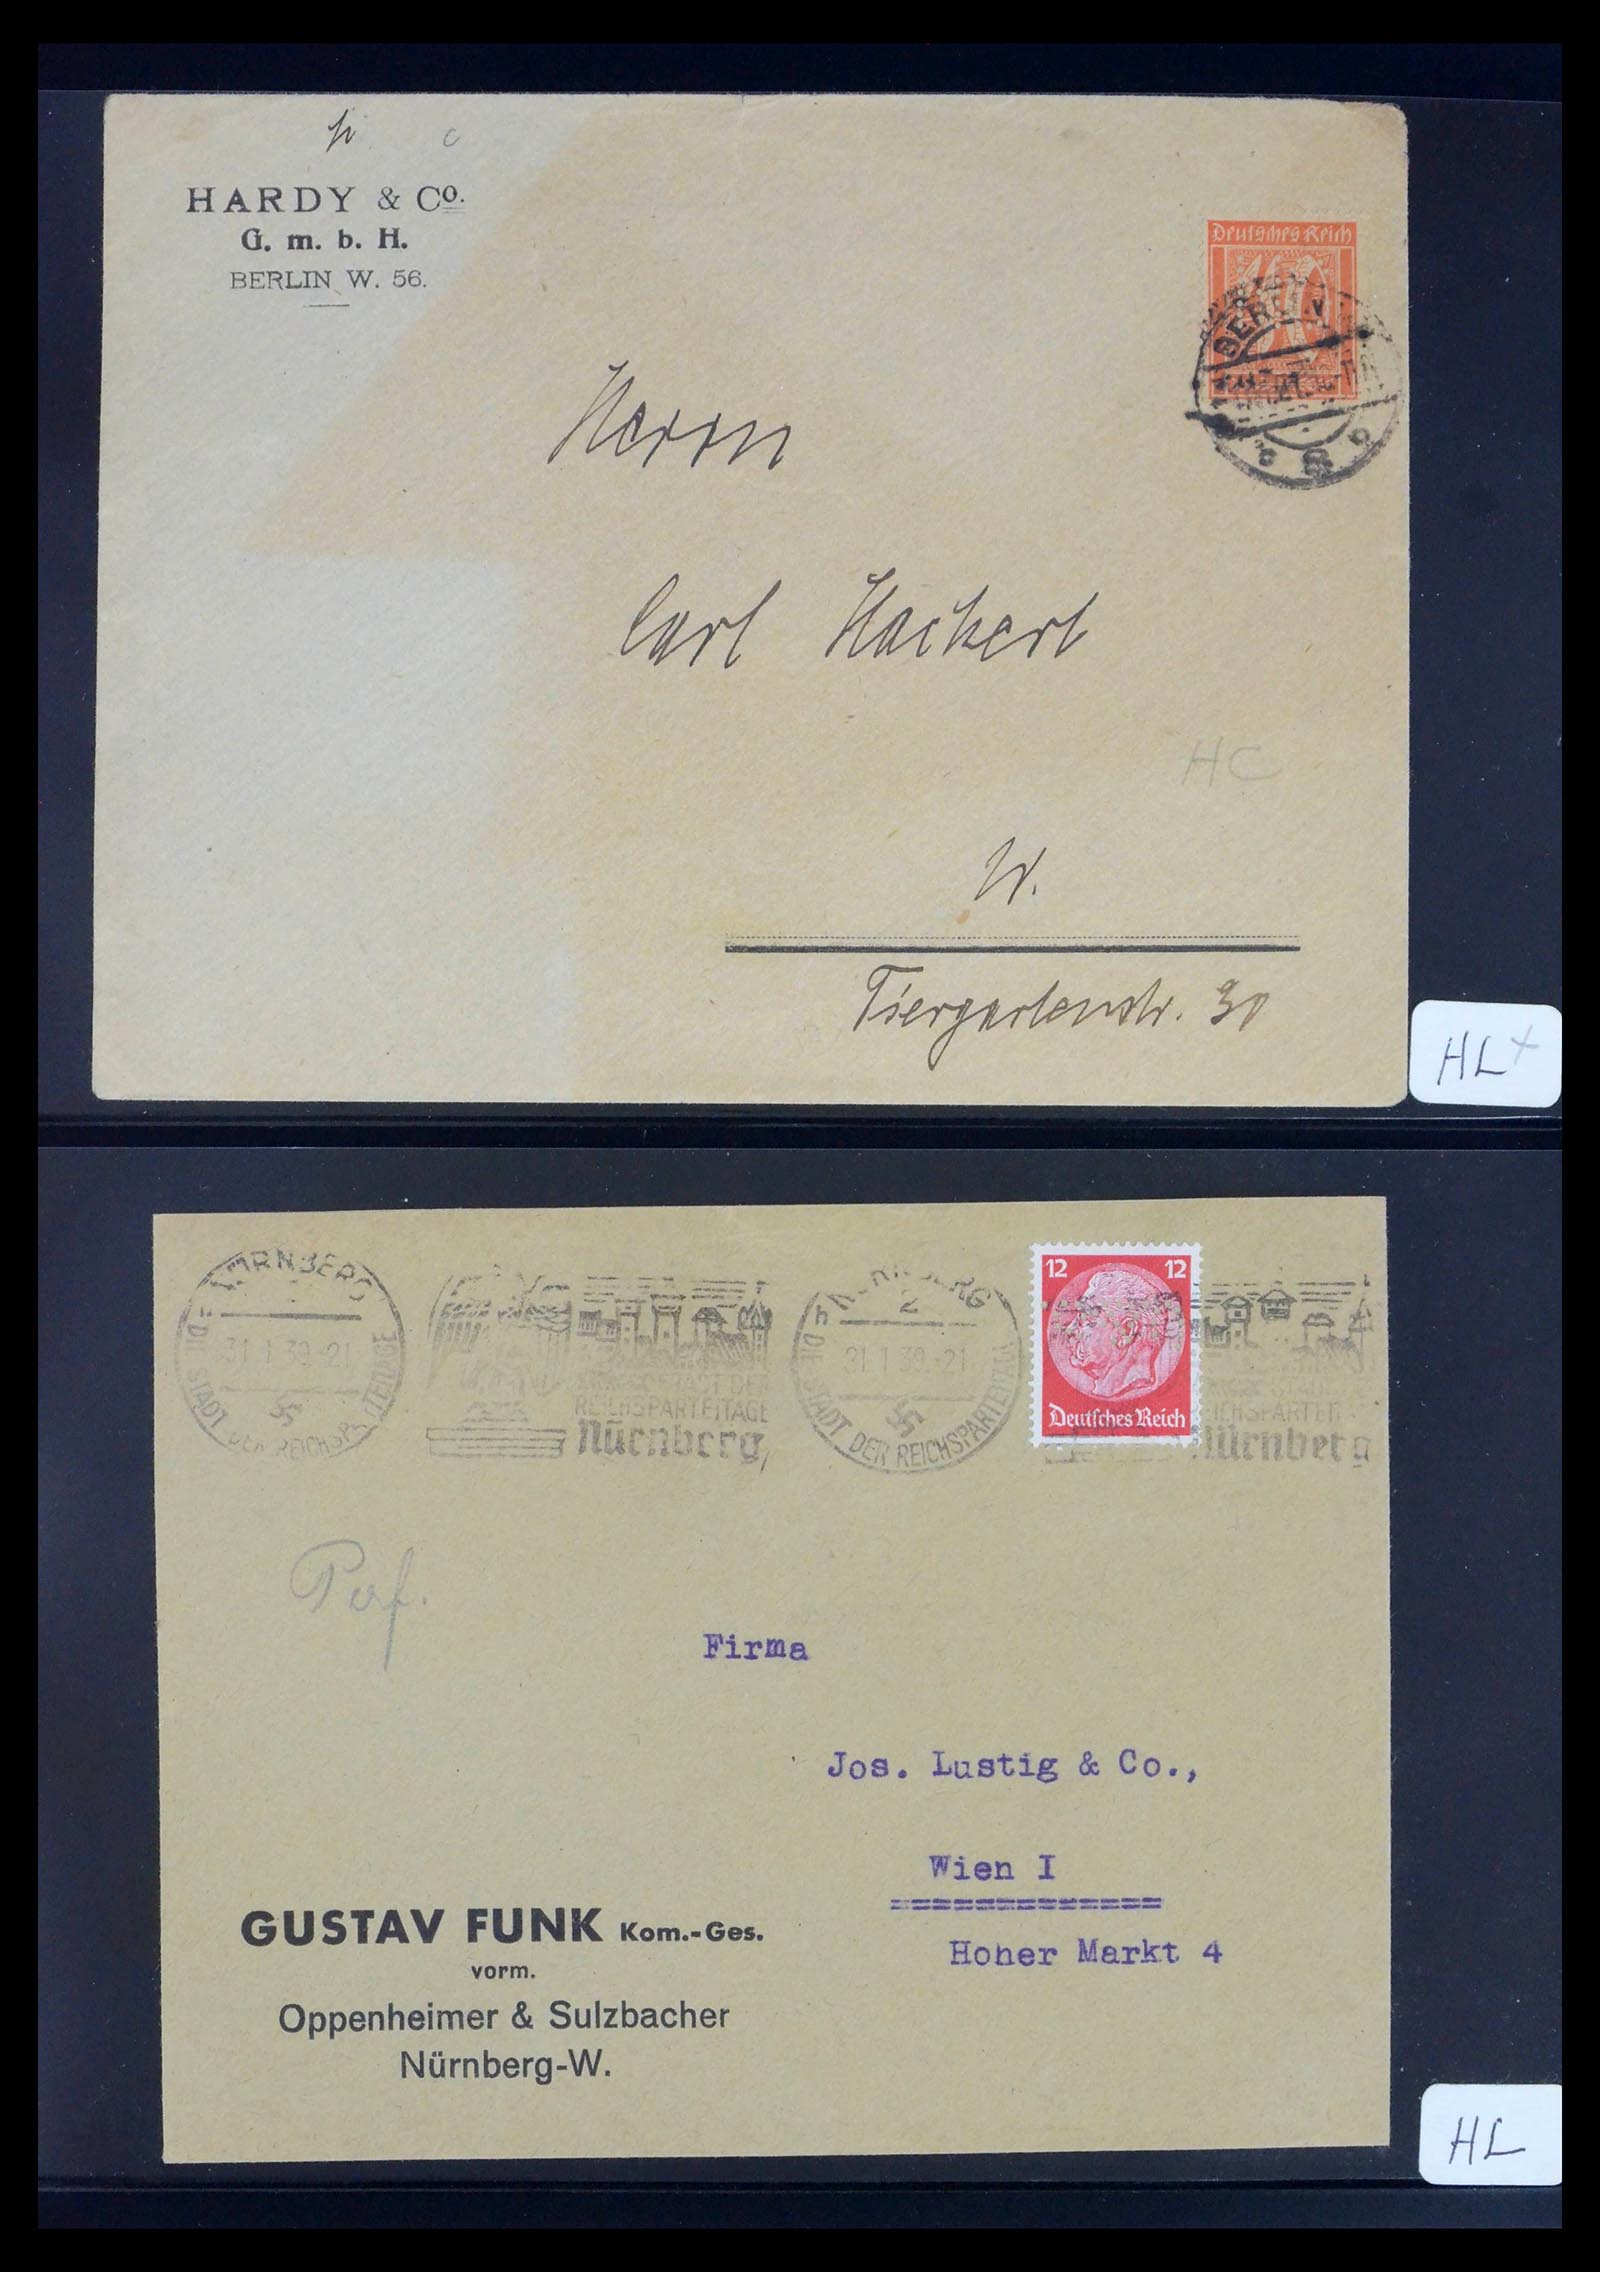 HARDY & Co.
G. m. b. H.
BERLIN W. 56.
Deutsches Reich
40
BERLIN
Herrn
Carl Hackert
HC
W.
Tiergartenstr. 30
HL
NÜRNBERG
2
31.1.39.-21
STADT DER REICHSPARTEITAGE
REICHSPARTEITAGE
Nürnberg
NÜRNBERG
2
31.1.39.-21
STADT DER REICHSPARTEITAGE
12 12
Deutsches Reich
Nürnberg
Perf.
Firma
Jos. Lustig & Co.,
Wien I
=============
Hoher Markt 4
GUSTAV FUNK Kom.-Ges.
vorm.
Oppenheimer & Sulzbacher
Nürnberg-W.
HL